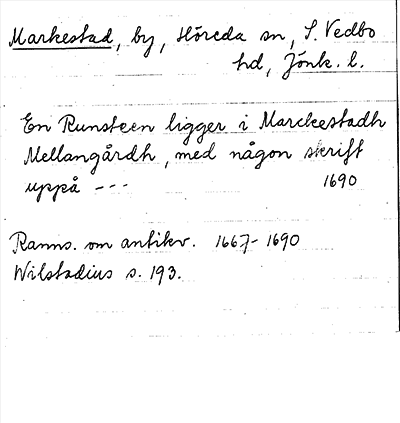 Markestad, by, Höreda sn, S. Vedbo
hd, Jönk. l.
En Runsteen ligger i Marckestadh
Mellangårdh, med någon skrift
uppå --- 1690
Ranns. om antikv. 1667-1690
Wilstadius s. 193.